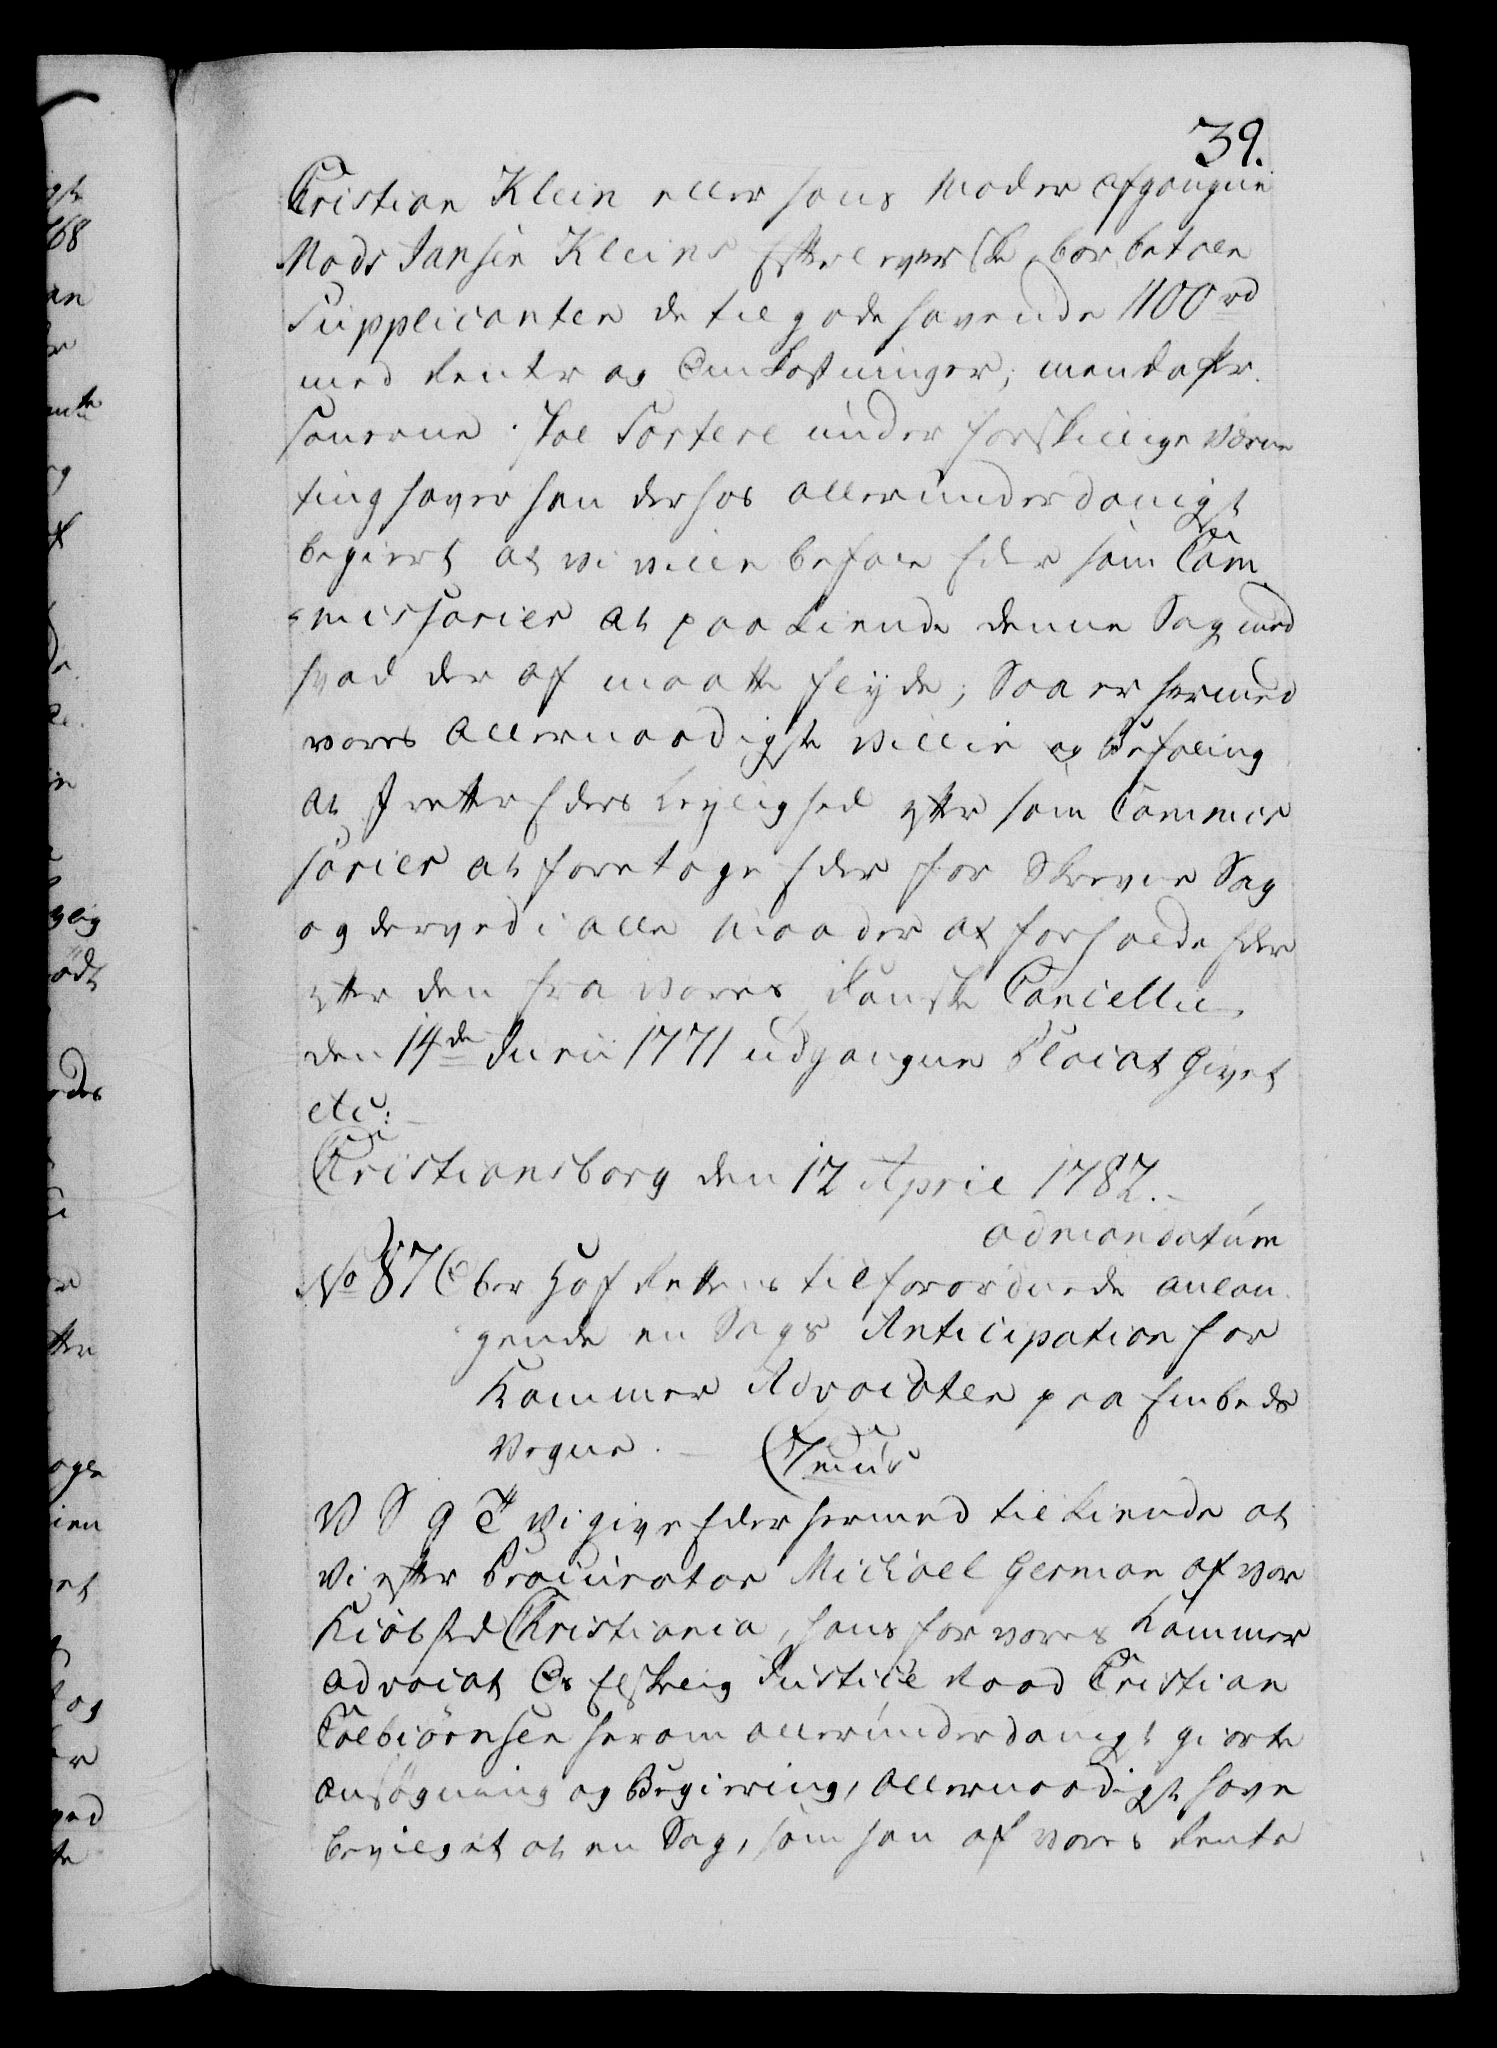 39.
Cristian Klein eller hans Moder afgangne
Mads Jansen Kleins Efterleverske bør betale
Supplicanten de tilgodehavende 1100 rd
med Renter og Omkostninger; men da Per-
sonerne skal Sortere under forskiellige Værne
ting haver han derhos allerunderdanigst
begiert at vi ville befale Eder som Com
missarier at paakiende denne Sag med
hvad der af maatte flyde; Saa er hermed
vores Allernaadigste villie og Befaling
at I retter Eders Leylighed efter som Commis
sarier at foretage Eder forskrevne Sag
og derved i alle Maader at forholde Eder
efter den fra vores danske Cancellie
den 14de Junii 1771 udgangne Placat Givet
etc:
Christiansborg den 12 April 1782.
ad mandatum
No 87 Ober Hof Rettens tilforordnede anlan
gende en Sags Anticipation for
Kammer Advocaten paa Embeds
Vegne.
V S G T Vi give Eder hermed tilkiende at
Vi efter Procurator Michael German af vor
Kiøbsted Christiania, hans for vores Kammer
advocat Os Elskelig Justice Raad Cristian
Colbiørnsen herom allerunderdanigst giorte
ansøgning og Begiering, Allernaadigst have
bevilget at en Sag, som han af vores Rente